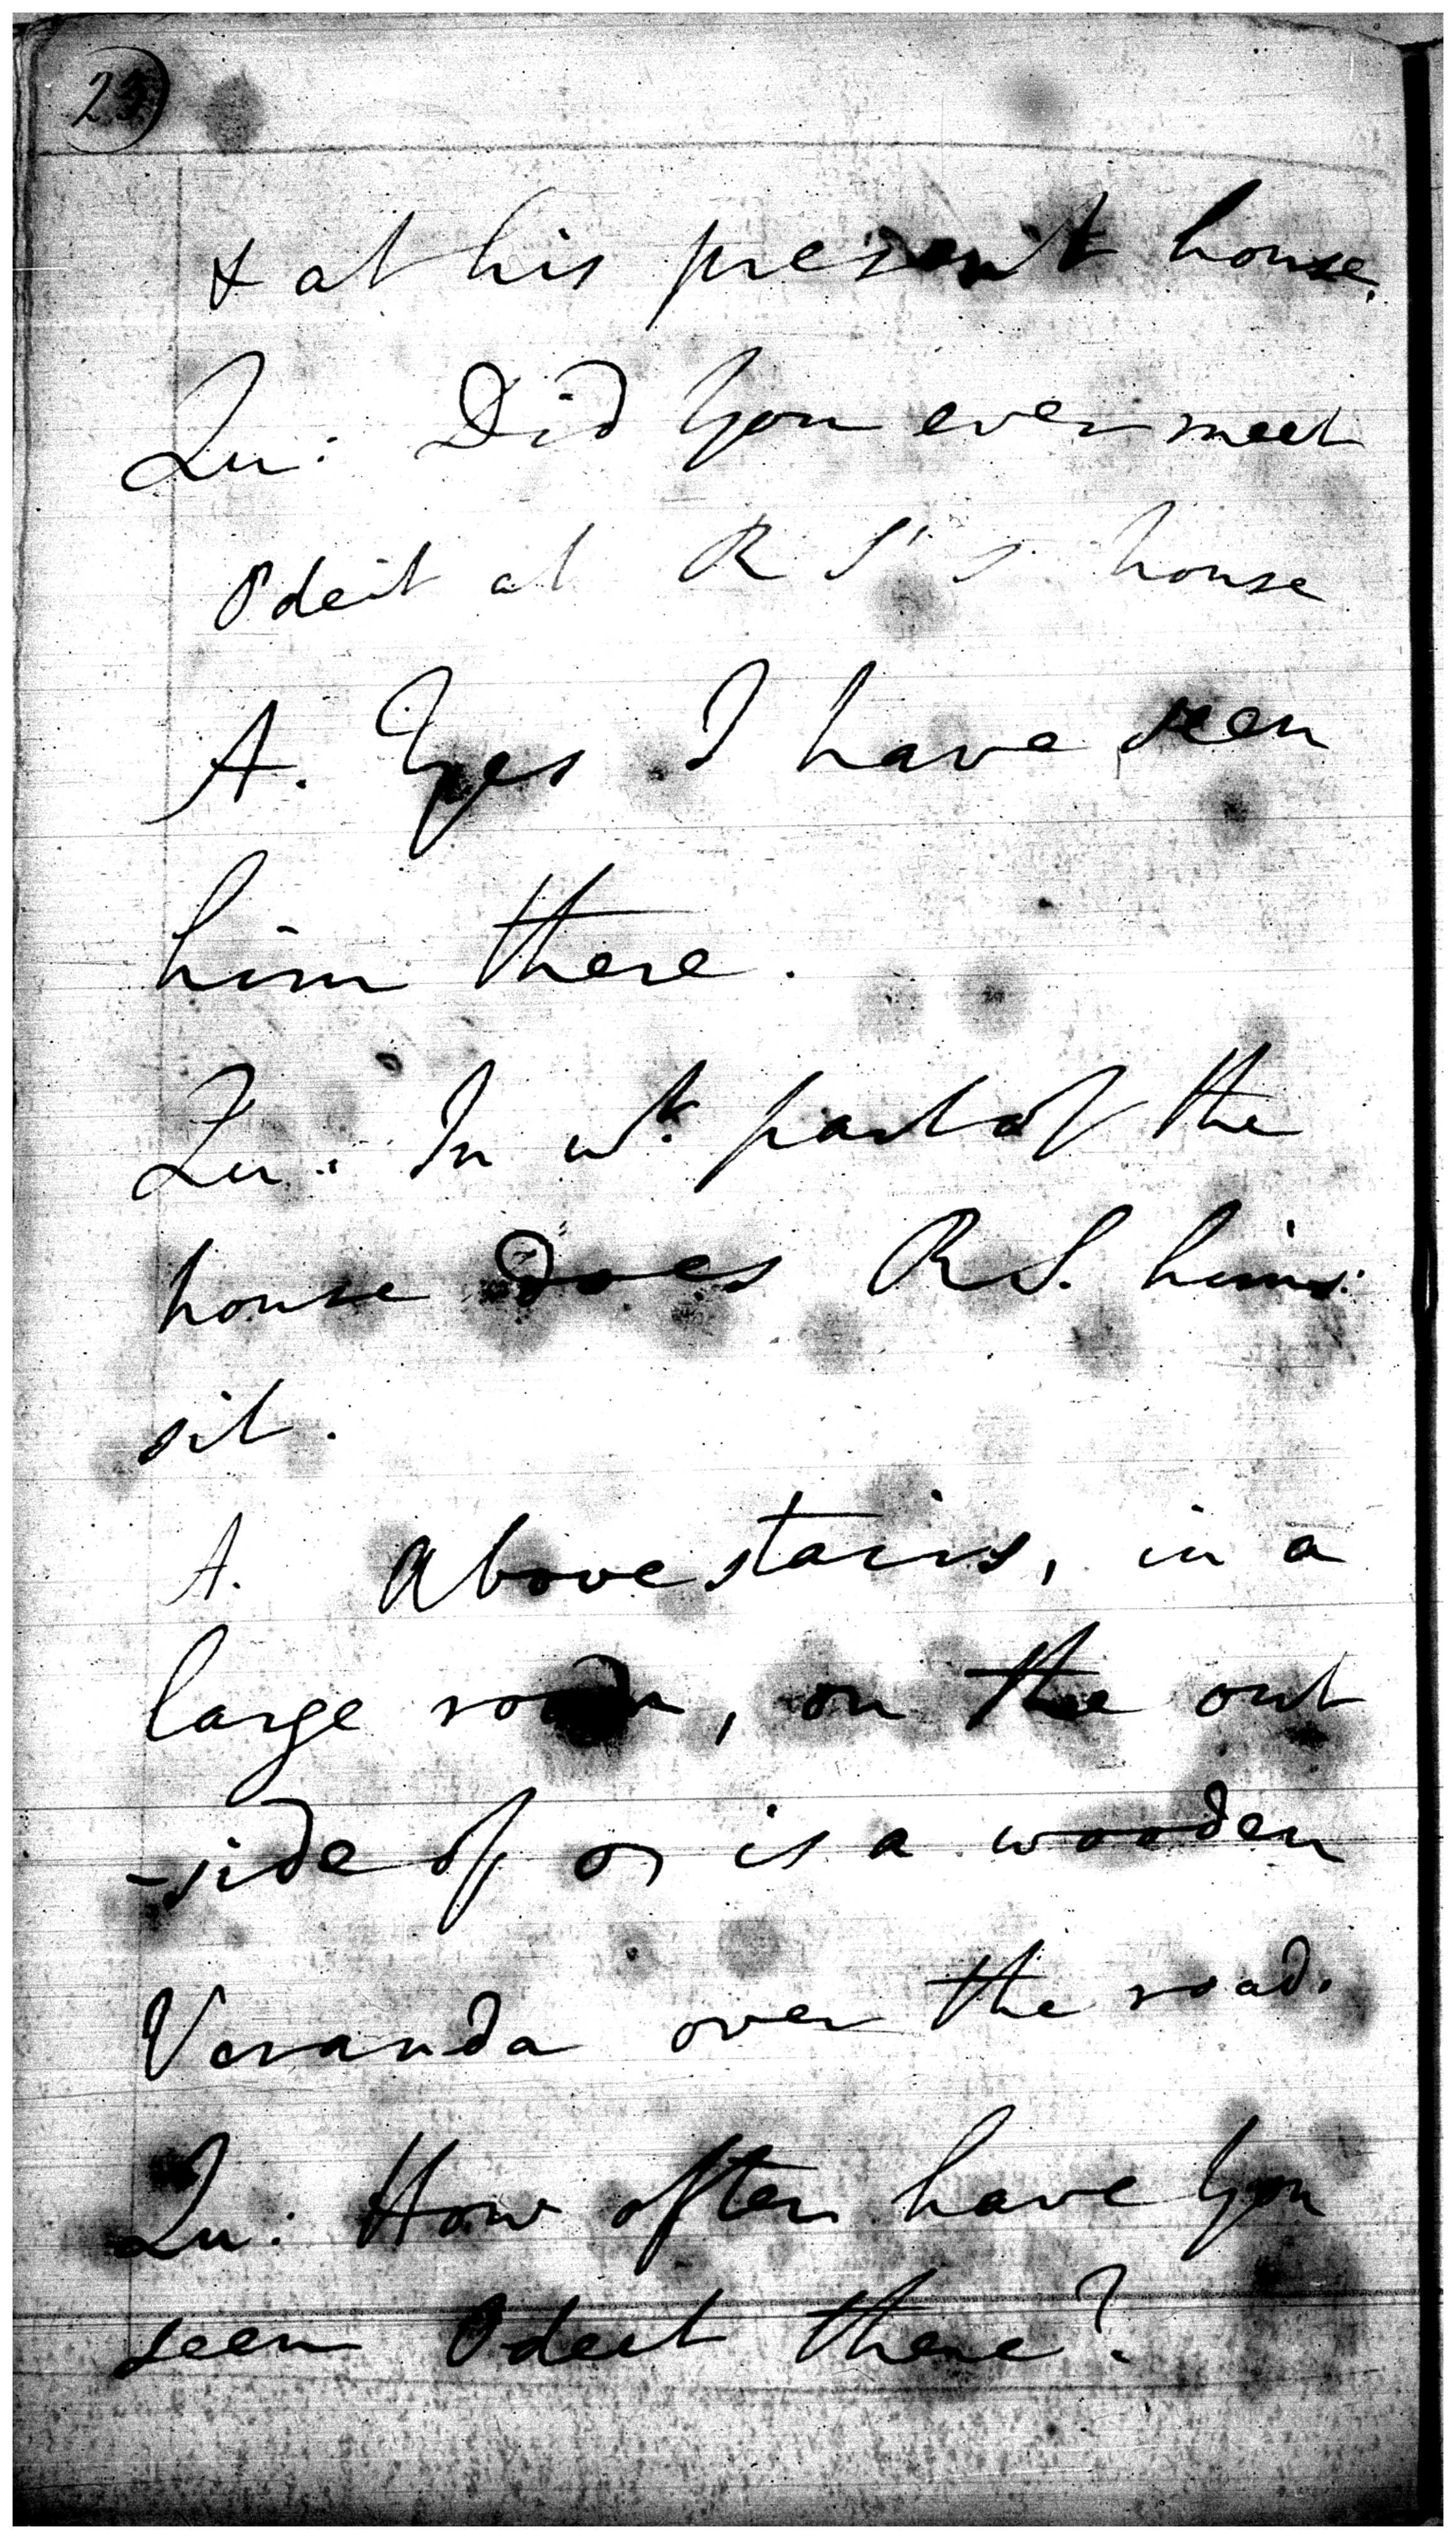 25
& at his present house.
Qu: Did you ever meet
Odeit at R S's house
A. Yes I have seen
him there.
Qu: In wt. part of the
house does R S. hims:
sit.
A. Above stairs, in a
large room, on the out
-side of is a wooden
Veranda over the road.
Qu: How often have you
seen Odeit there?